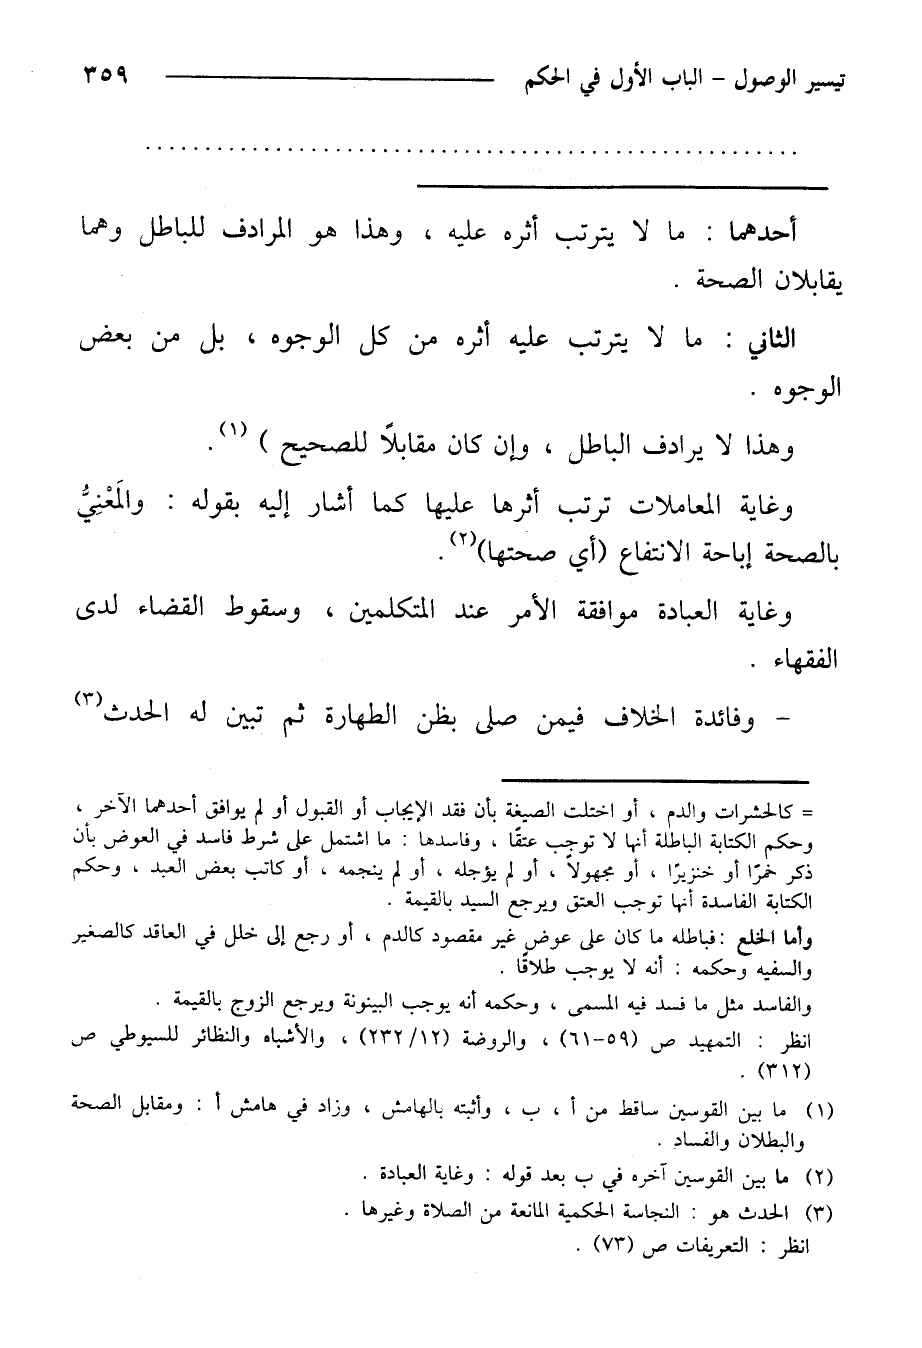 تيسير الوصول – الباب الأول في الحكم ٣٥٩
أحدهما : ما لا يترتب أثره عليه ، وهذا هو المرادف للباطل وهما
يقابلان الصحة .
الثاني : ما لا يترتب عليه أثره من كل الوجوه ، بل من بعض
الوجوه .
وهذا لا يرادف الباطل ، وإن كان مقابلاً للصحيح ) (١) .
وغاية المعاملات ترتب أثرها عليها كما أشار إليه بقوله : والمَعْنِيُّ
بالصحة إباحة الانتفاع (أي صحتها)(٢) .
وغاية العبادة موافقة الأمر عند المتكلمين ، وسقوط القضاء لدى
الفقهاء .
– وفائدة الخلاف فيمن صلى بظن الطهارة ثم تبين له الحدث(٣)
= كالحشرات والدم ، أو اختلت الصيغة بأن فقد الإيجاب أو القبول أو لم يوافق أحدهما الآخر ،
وحكم الكتابة الباطلة أنها لا توجب عتقًا ، وفاسدها : ما اشتمل على شرط فاسد في العوض بأن
ذكر خمرًا أو خنزيرًا ، أو مجهولاً ، أو لم يؤجله ، أو لم ينجمه ، أو كاتب بعض العبد ، وحكم
الكتابة الفاسدة أنها توجب العتق ويرجع السيد بالقيمة .
وأما الخلع : فباطله ما كان على عوض غير مقصود كالدم ، أو رجع إلى خلل في العاقد كالصغير
والسفيه وحكمه : أنه لا يوجب طلاقًا .
والفاسد مثل ما فسد فيه المسمى ، وحكمه أنه يوجب البينونة ويرجع الزوج بالقيمة .
انظر : التمهيد ص (٥٩-٦١) ، والروضة (١٢/ ٢٣٢) ، والأشباه والنظائر للسيوطي ص
(٣١٢) .
(١) ما بين القوسين ساقط من أ ، ب ، وأثبته بالهامش ، وزاد في هامش أ : ومقابل الصحة
والبطلان والفساد .
(٢) ما بين القوسين آخره في ب بعد قوله : وغاية العبادة .
(٣) الحدث هو : النجاسة الحكمية المانعة من الصلاة وغيرها .
انظر : التعريفات ص (٧٣) .